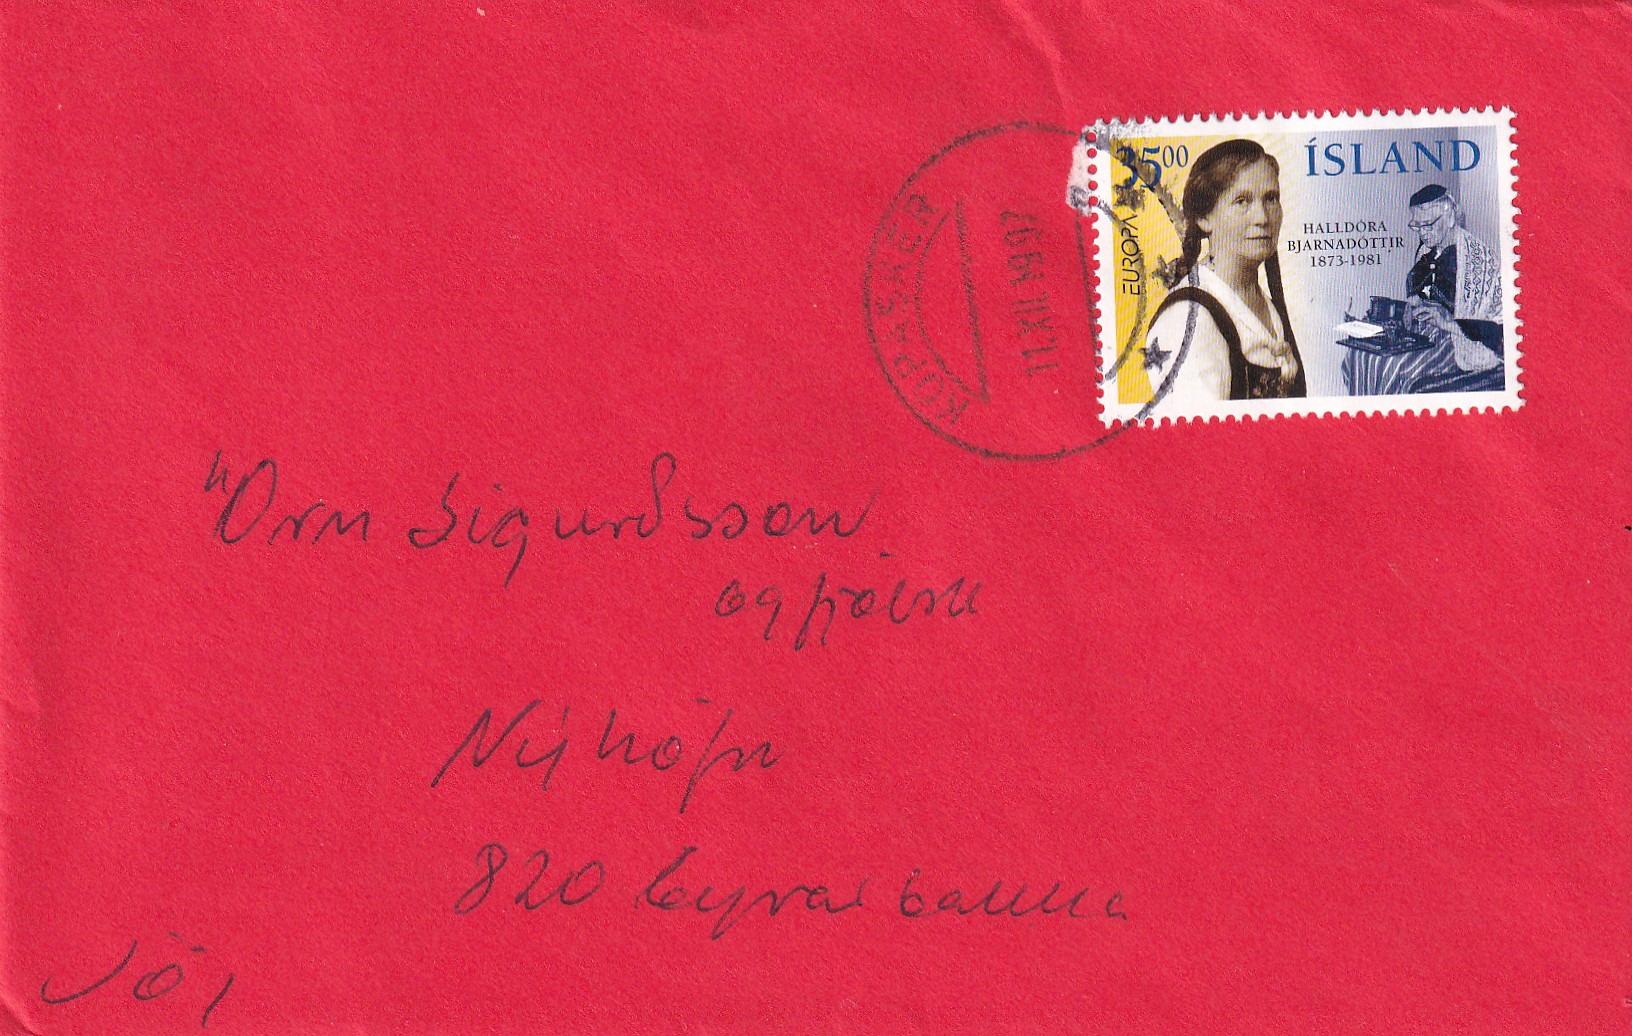 35⁰⁰
ÍSLAND
EUROPA
HALLDÓRA
BJARNADÓTTIR
1873-1981
KÓPASKER
11.XII 1997
Örn Sigurðsson
og fjölsk
Nýhöfn
820 Eyrarbakka
Jól